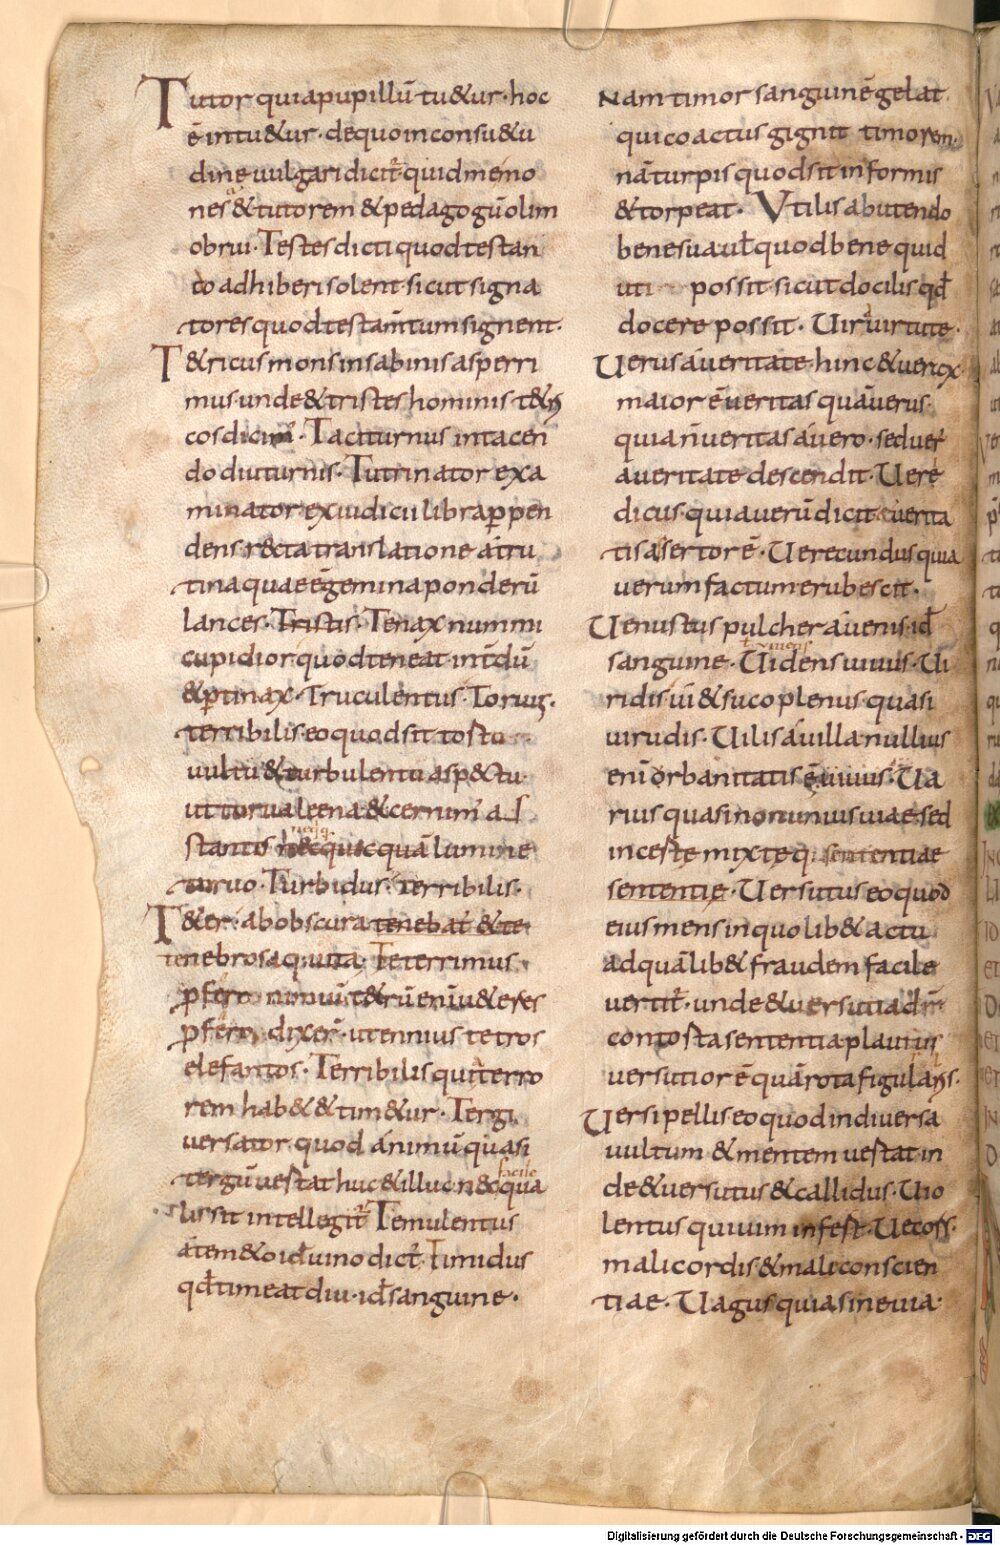 Tutor quia pupillū tu&ur· hoc
ē intu&ur· de quo in consu&u
dine vulgari dicit̃ quid me mo
nes & tutorem & pedagogū olim
obrui· Testes dicti quod testan
to adhiberi solent· sicut signa
tores quod testam̄tum signent·
T&ricus mons in sabinis asperri
mus· unde & tristes hominis t&ri
cos dicim̄· Taciturnus in tacen
do diuturnis· Tutrinator exa
minator ex iudicii libra p̱pen
dens r&cta translatione a tru
tina quae ē gemina ponderū
lances· Tristis· Tenax nummi
cupidior quod teneat· int̄dū
& p̱tinax· Truculentus· Toruus·
terribilis· eo quod sit tosto
uultu & turbulentu asp&ctu·
ut torua leena & cernim̄ a
stantis n&c quicquā lumine
toruo· Turbidus· terribilis·
T&er· ab obscura tenebat̄ & te
tenebrosaq; uita· Teterrimus·
p̱fero
p̱fero dixer̄· ut ennius tetros
elefantos· Terribilis qui terro
rem hab& & tim&ur· Tergi
uersator quod animū quasi
facile
tergū uestat huc & illuc n&c qua
lis sit intellegit̃ Temulentus
a tem&o id ē uino dict̄· Timidus
qđ timeat diu· id ē sanguine·
Nam timor sanguinē gelat
qui coactus gignit timorem·
nā turpis quod sit informis
& torpeat· Vtilis ab utendo
bene sua ut̄ quod bene quid
uti possit· sicut docilis qđ
docere possit· Uir a uirtute·
Uerus a ueritate· hinc & uerax
maior ē ueritas quā uerus·
quia n̄ ueritas a uero· sed uer̄
a ueritate descendit· Uere
dicus· quia uerū dicit & uerita
tis assertor ē· Uerecundus quia
uerum factum erubescit·
Uenustus pulcher a uenis· id ē
ł uiuens
sanguine· Uidens uiuus· Ui
ridis ui & suco plenus· quasi
uirudis· Uilis a uilla nullius
eni orbanitatis ē uiuus· Ua
rius quasi non unius uiae sed
inceste mixteq; sententiae
sententie· Uersutus eo quod
eius mens in quolib& actu
ad quālib& fraudem facile
uertit̃· unde & uersutia dr̄
contosta sententia plautus
uersutior ē quā rota figularis·
Uersipellis· eo quod in diuersa
uultum & mentem uestat in
de & uersutus & callidus· Uio
lentus qui uim infest· Uecors·
mali cordis & male conscien
tiae· Uagus quia sine uia·
Digitalisierung gefördert durch die Deutsche Forschungsgemeinschaft - DFG